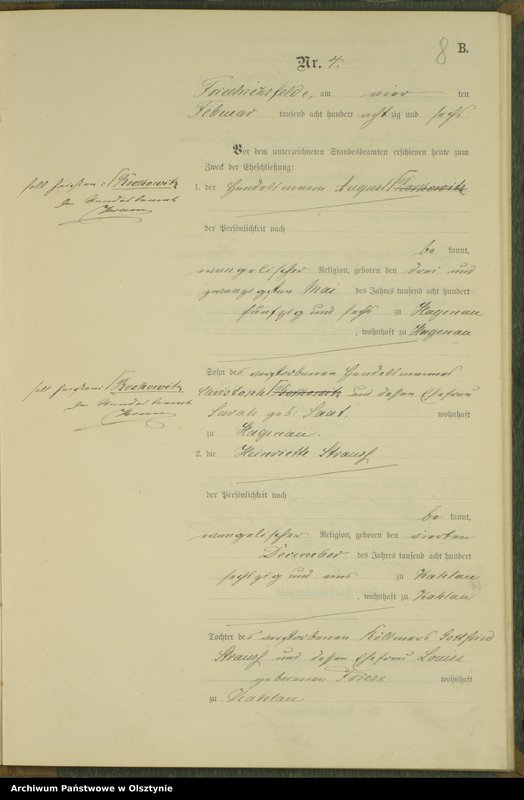 8 B.
Nr. 4.
Friedrichsfelde, am vier ten
Februar tausend acht hundert acht zig und sechs
Vor dem unterzeichneten Standesbeamten erschienen heute zum
Zweck der Eheschließung:
1. der Handelsmann August
der Persönlichkeit nach
be kannt,
evangelischer Religion, geboren den drei und
zwanzigsten Mai des Jahres tausend acht hundert
fünfzig und sechs zu Hagenau
, wohnhaft zu Hagenau
Sohn des verstorbenen Handelsmannes
Christoph und dessen Ehefrau
Sarah geb. wohnhaft
zu Hagenau.
2. die Henriette Strauß
der Persönlichkeit nach
be kannt,
evangelischer Religion, geboren den vierten
December des Jahres tausend acht hundert
sechszig und eins zu Kahlau
, wohnhaft zu Kahlau
Tochter des verstorbenen Köllmers Gottfried
Strauß und dessen Ehefrau Louise
geborenen Friese wohnhaft
zu Kahlau
soll heißen:
Der Standesbeamte
soll heißen:
Der Standesbeamte
Archiwum Państwowe w Olsztynie